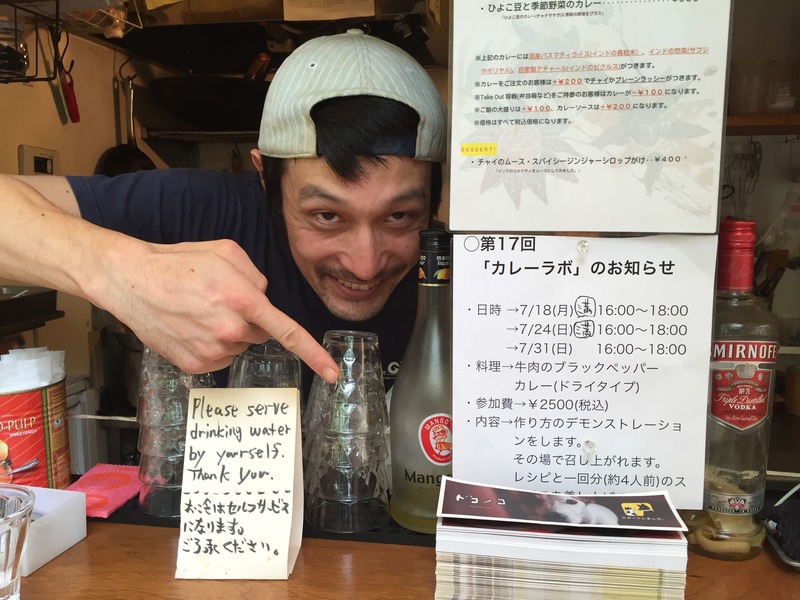 ・ひよこ豆と季節野菜のカレー
※上記のカレーには国産バスマティライス(インドの長粒米)、インドの惣菜(サブジ
やポリヤル)、自家製アチャール(インドのピクルス)がつきます。
※カレーをご注文のお客様は+¥200でチャイかプレーンラッシーがつきます。
※Take Out 容器(弁当箱など)をご持参のお客様はカレーがー¥100になります。
※ご飯の大盛りは+¥100、カレーソースは+¥200になります。
※価格はすべて税込価格になります。
DESSERT!
・チャイのムース・スパイシージンジャーシロップがけ‥¥400
「インドのミルクティをムースにしてみました。」
〇第17回
「カレーラボ」のお知らせ
・日時 →7/18(月) 満 16:00〜18:00
→7/24(日) 満 16:00〜18:00
→7/31(日) 16:00〜18:00
・料理→牛肉のブラックペッパー
カレー(ドライタイプ)
・参加費→¥2500(税込)
・内容→作り方のデモンストレーショ
ンをします。
その場で召し上がれます。
レシピと一回分(約4人前)のス
Please serve
drinking water
by yourself.
Thank you.
お水はセルフサービス
になります。
ご了承ください。
-PULP
SWEETENED
mango
MANGO
Mang
SMIRNOFF
Nº 21
Triple Distilled
VODKA
ドコノコ
スタートしました。